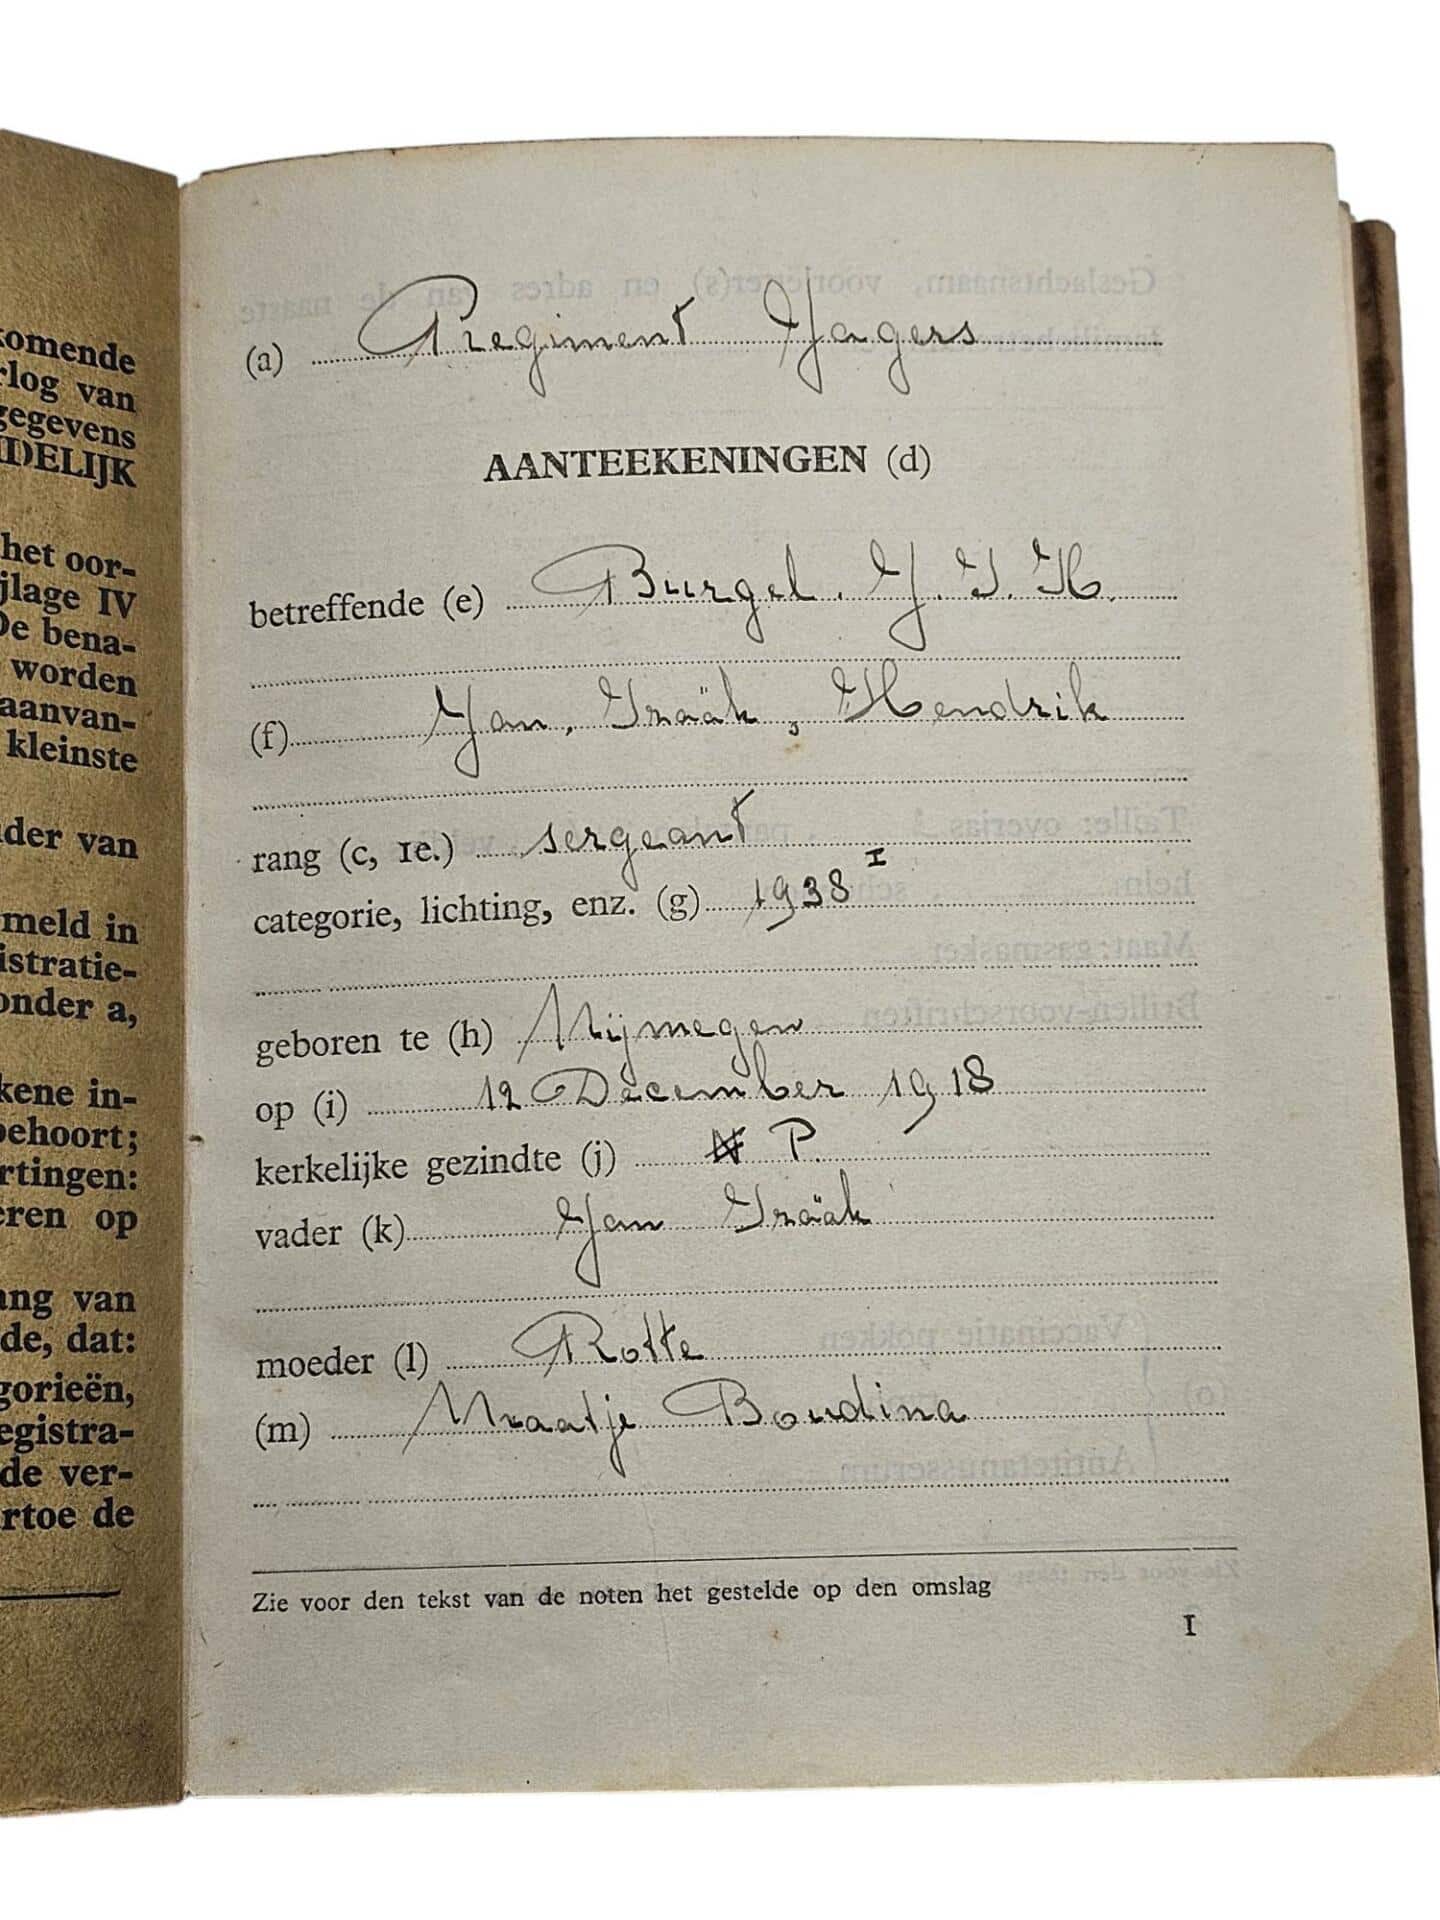 komende
rlog van
gegevens
DELIJK
het oor-
jlage IV
De bena-
worden
aanvan-
kleinste
der van
meld in
istratie-
onder a,
kene in-
behoort;
rtingen:
eren op
ang van
de, dat:
gorieën,
egistra-
de ver-
rtoe de
(a) Regiment Jagers
AANTEEKENINGEN (d)
betreffende (e) Burgel. J. I. H.
(f) Jan, Izaäk, Hendrik
rang (c, 1e.) sergeant
categorie, lichting, enz. (g) 1938 I
geboren te (h) Nijmegen
op (i) 12 December 1918
kerkelijke gezindte (j) P.
vader (k) Jan Izaäk
moeder (l) Rotte
(m) Maatje Boudina
Zie voor den tekst van de noten het gestelde op den omslag
1